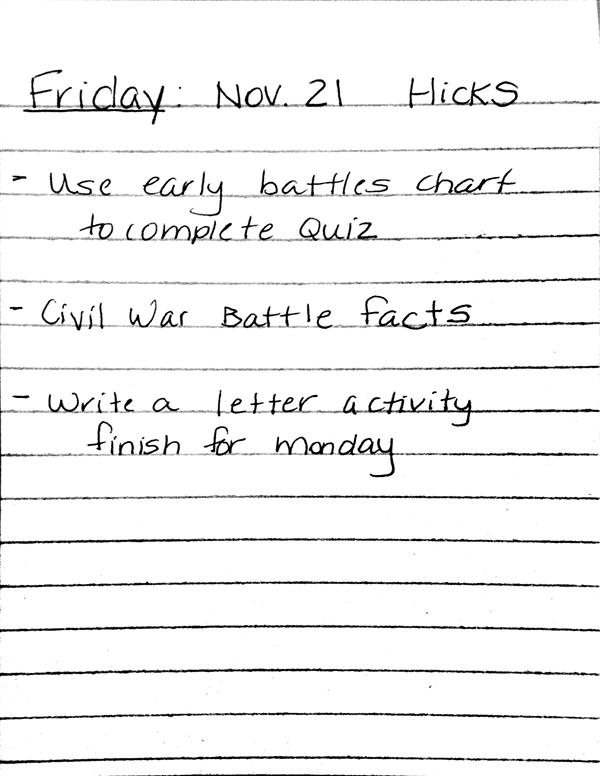 Friday: Nov. 21 Hicks
- Use early battles chart
to complete Quiz
- Civil War Battle facts
- Write a letter activity
finish for monday